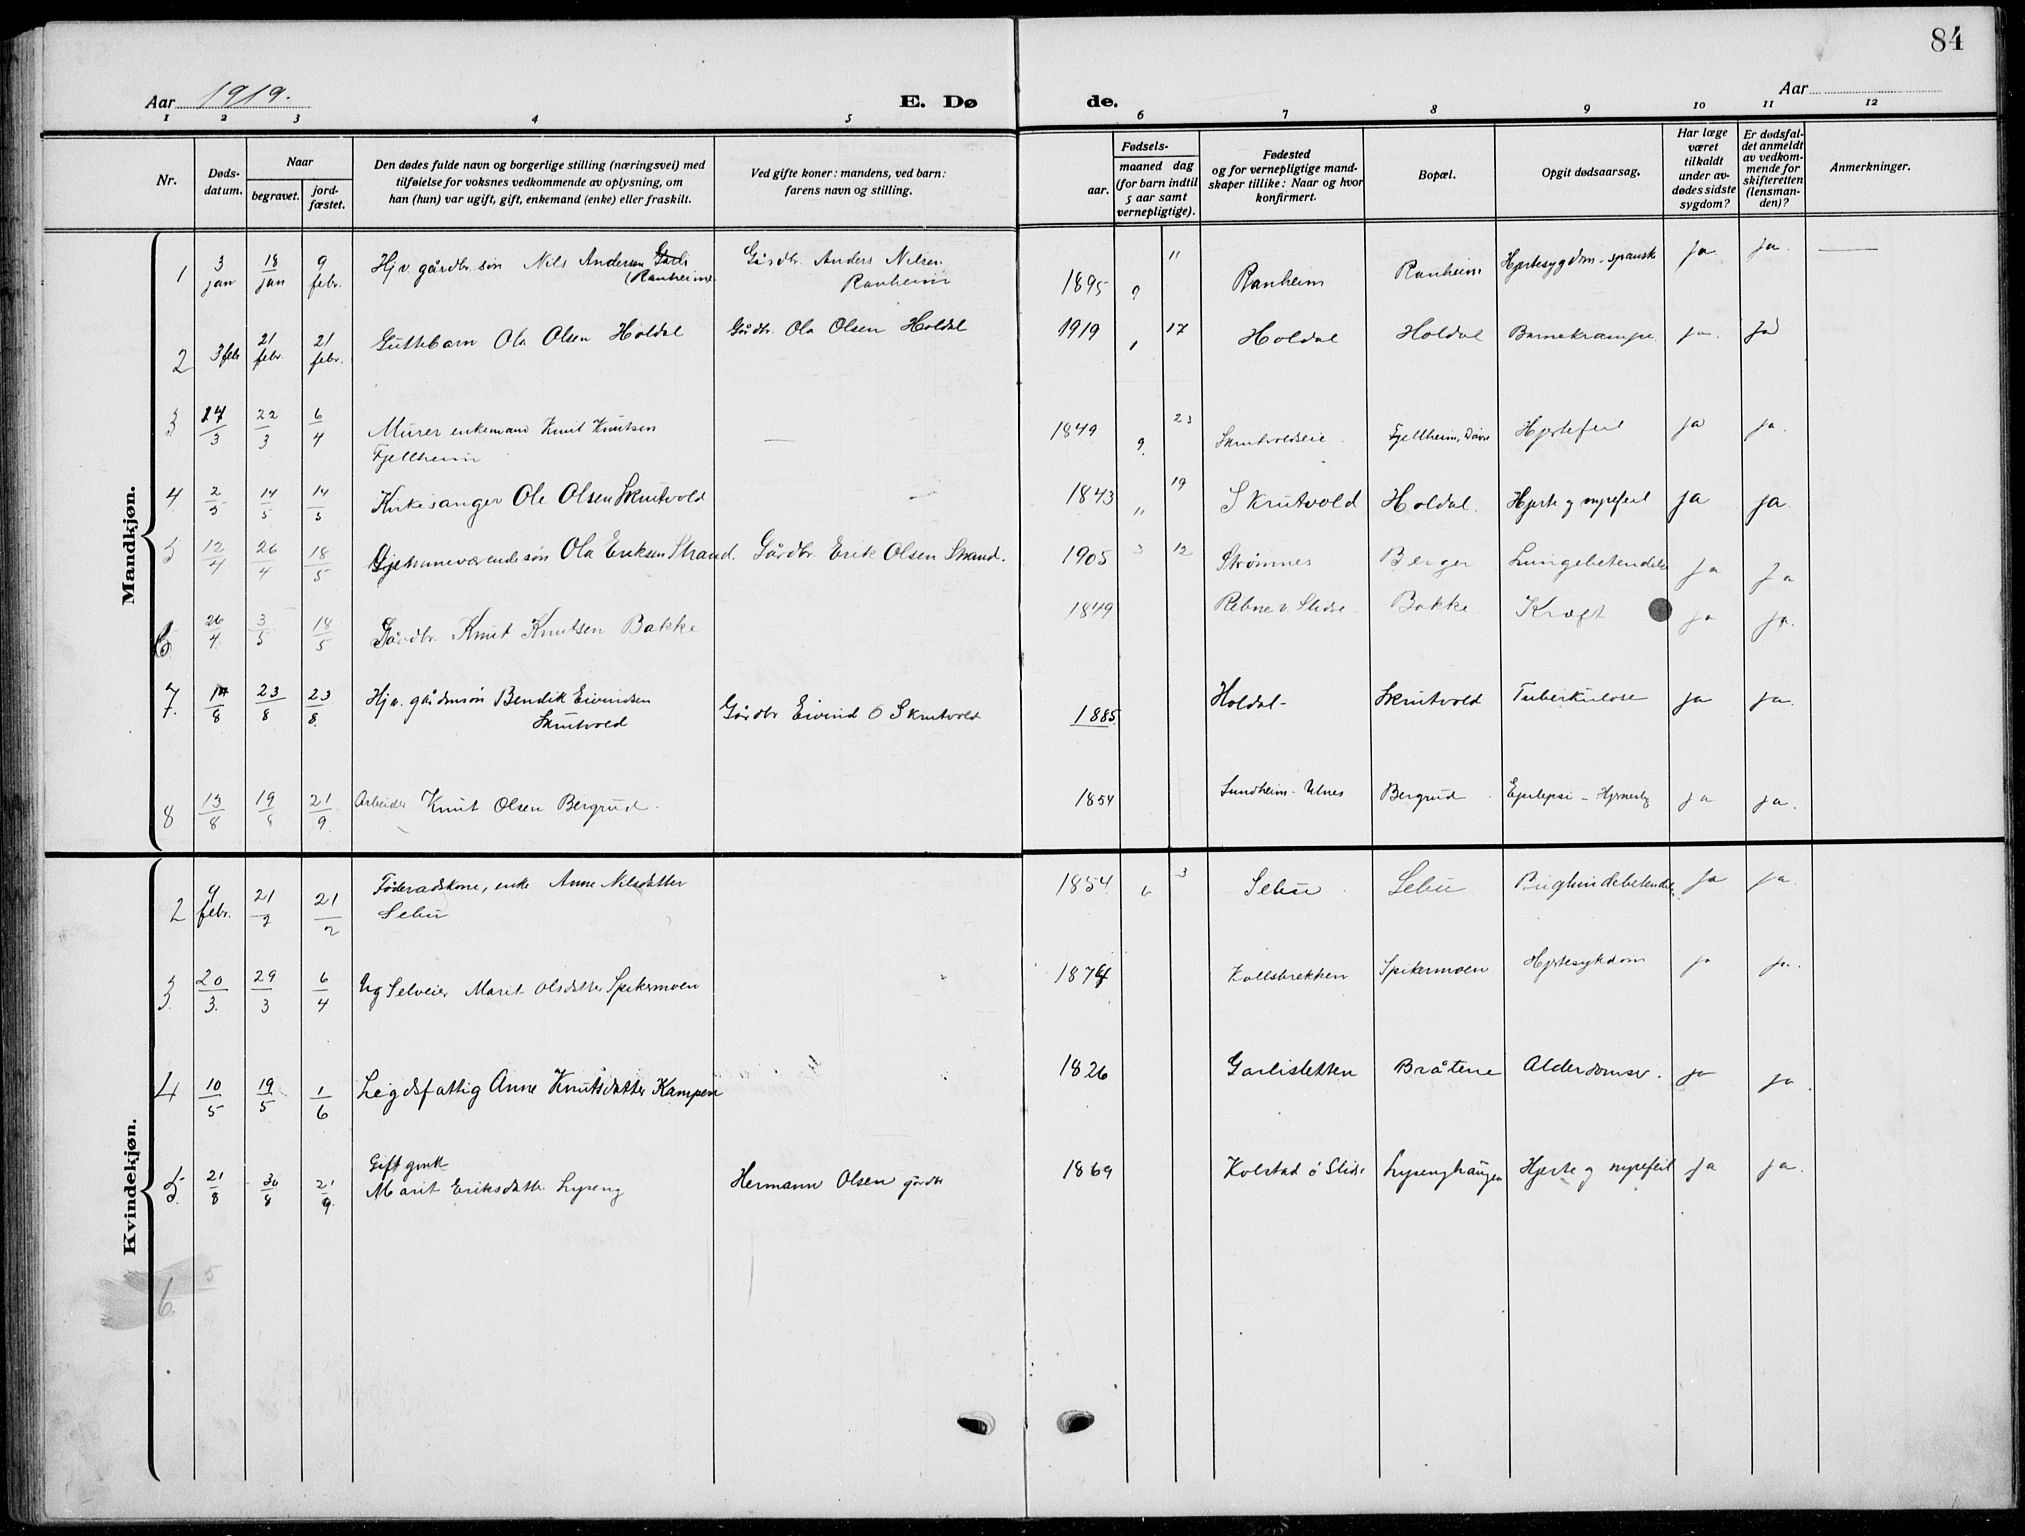 84
Aar 1919.
E. Dø
de.
Aar
1 2 3 4 5 6 7 8 9 10 11 12
Nr.
Døds-
datum.
Naar
begravet.
jord-
fæstet.
Den dødes fulde navn og borgerlige stilling (næringsvei) med
tilføielse for voksnes vedkommende av oplysning, om
han (hun) var ugift, gift, enkemand (enke) eller fraskilt.
Ved gifte koner: mandens, ved barn:
farens navn og stilling.
Fødsels-
aar.
maaned dag
(for barn indtil
5 aar samt
vernepligtige).
Fødested
og for vernepligtige mand-
skaper tillike: Naar og hvor
konfirmert.
Bopæl.
Opgit dødsaarsag.
Har læge
været
tilkaldt
under av-
dødes sidste
sygdom?
Er dødsfal-
det anmeldt
av vedkom-
mende for
skifteretten
(lensman-
den)?
Anmerkninger.
Mandkjøn.
1 3 jan 18 jan 9 febr. Hjv. gårdbr. søn Nils Andersen Garli (Ranheim) Gårdbr. Anders Nilsen Ranheim 1895 9 11 Ranheim Ranheim Hjertesygdom - spansk ja ja.
2 3 febr 21 febr. 21 febr. Guttebarn Ola Olsen Holdal Gårdbr. Ola Olsen Holdal 1919 1 17 Holdal Holdal Barnekrampe ja. ja
3 24/3 22/3 6/4 Murer enkemand Knut Knutsen
Fjellheim — 1849 9 23 Skrutvoldseie Fjellheim, Hjertefeil ja ja.
4 2/5 14/5 14/5 Kirkesanger Ole Olsen Skrutvold 1843 11 19 Skrutvold Holdal. Hjerte og nyrefeil ja ja.
5 12/4 26/4 18/5 Hjemmeværende søn Ola Eriksen Strand. Gårdbr. Erik Olsen Strand. 1905 3 12 Strømnes Berger Lungebetendelse ja ja
6 26/4 3/5 18/5 Gårdbr. Knut Knutsen Bakke 1849 Rebne v. Slidre Bakke Kræft ja ja.
7. 23/8 23/8. Hjv. gårdmsøn Bendik Eivindsen
Skrutvold Gårdbr Eivind O Skrutvold 1885 Holdal - Skrutvold Tuberkulose ja ja.
8 13/8 19/8 21/9 Arbeider Knut Olsen Bergrud. 1854 Sundheim - Ulnes Bergrud Epilepsi - ja ja.
Kvindekjøn.
2 9 febr. 21/2 21/2 Føderadskone, enke Anne Nilsdatter
Sebu 1854 6 3 Sebu Sebu Bughindebetendelse ja ja.
3. 20/3. 29/3 6/4 Ug Selveier Marit Olsdatter Spikermoen 1874 Kollsbrekken Spikermoen Hjertesykdom ja ja.
4 10/5 19/5 1/6 Legdsfattig Anne Knutsdatter Kampen 1826 Garlisletten Bråtene Alderdomssv. ja ja
5. 21/8 30/8 21/9 Gift gmk
Marit Eriksdattr. Lyseng Hermann Olsen gårdbr 1869 Kolstad ø Slidre Lysenghaugen Hjerte og nyrefeil ja ja.
6. 5